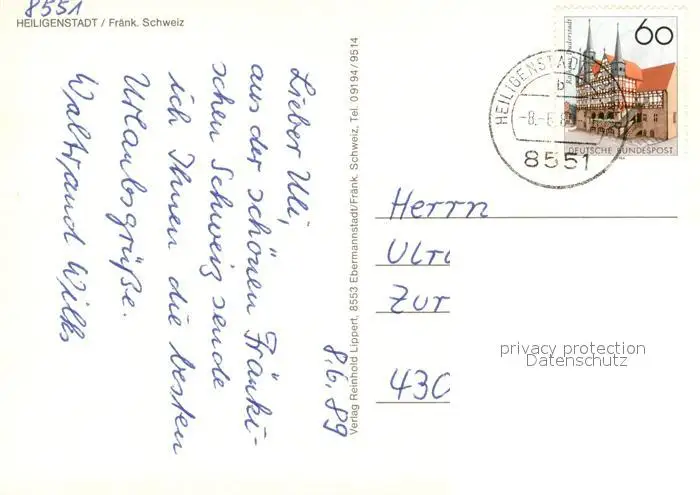 8551
HEILIGENSTADT / Fränk. Schweiz
8.6.89
Lieber Uli,
aus der schönen Fränki-
schen Schweiz sende
ich Ihnen die besten
Urlaubsgrüße.
Waltraud Wilks
Verlag Reinhold Lippert, 8553 Ebermannstadt/Fränk. Schweiz, Tel. 09194/9514
60
DEUTSCHE BUNDESPOST
HEILIGENSTADT
b
-8.-6.8
8551
Herrn
Ulri
Zur
430
privacy protection
Datenschutz